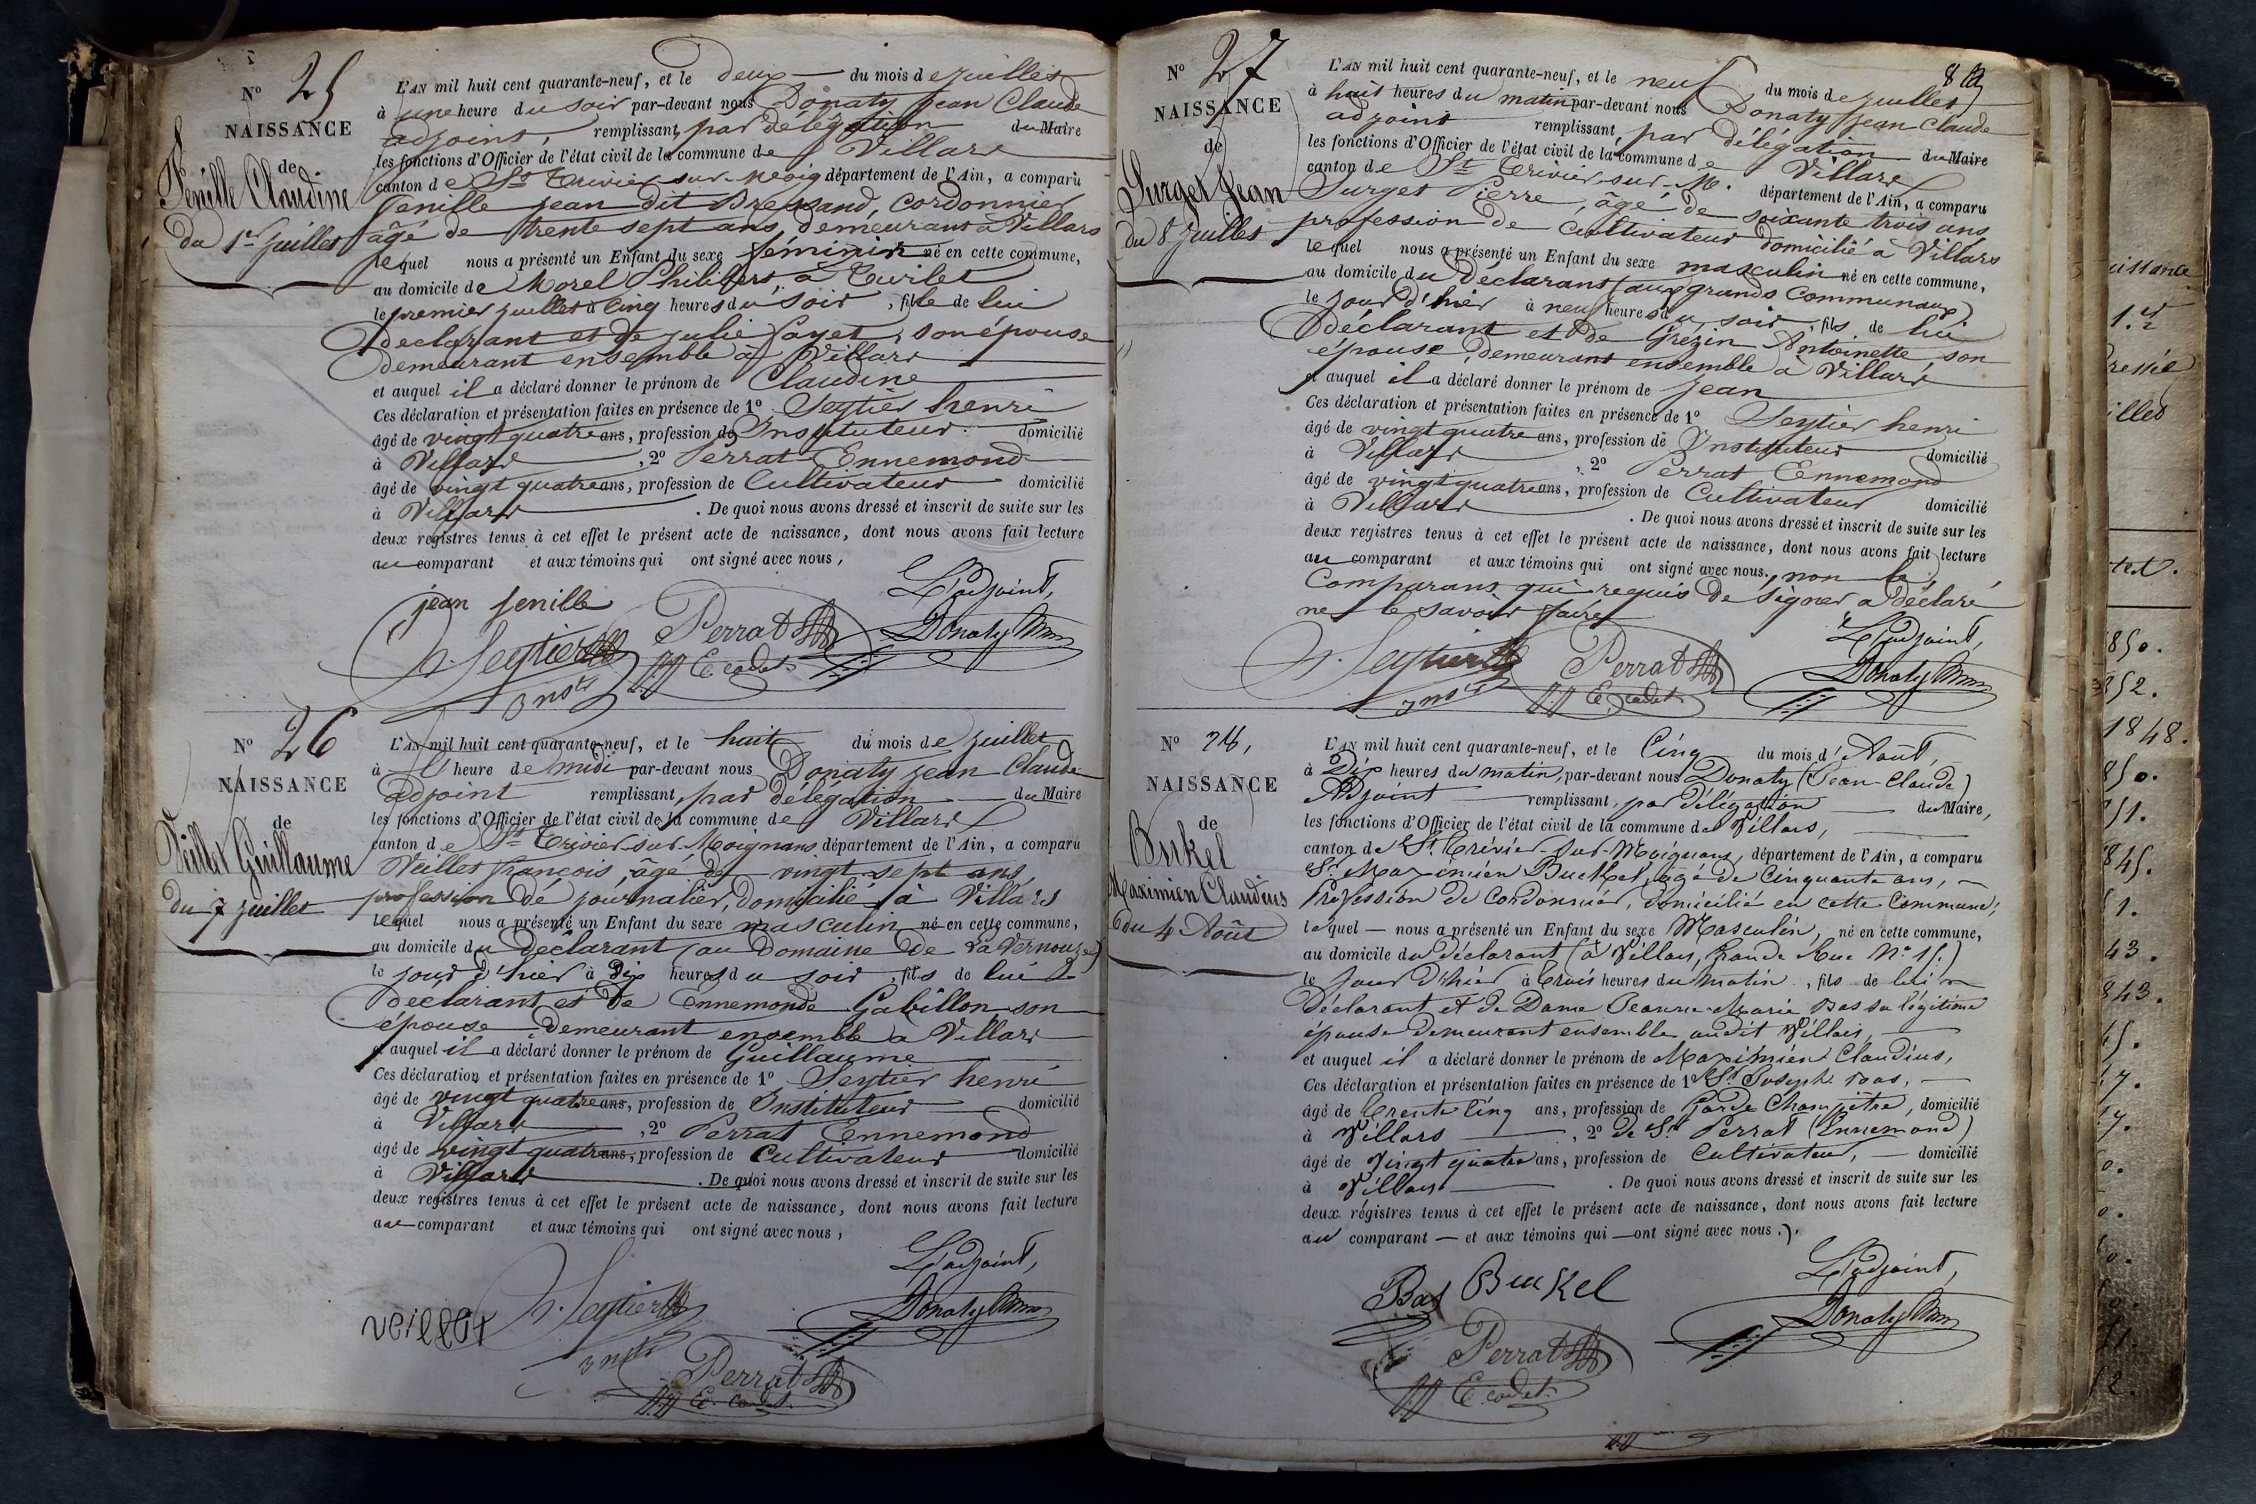 N° 25
NAISSANCE
de
Fenille Claudine
du 1er juillet
L'AN mil huit cent quarante-neuf, et le deux du mois de juillet
à une heure du soir par-devant nous Donaty Jean Claude
adjoint, remplissant, par délégation du Maire
les fonctions d'Officier de l'état civil de la commune de Villars
canton de St Trivier sur Moig département de l'Ain, a comparu
Fenille Jean dit Bressand, Cordonnier
âgé de trente sept ans, demeurant à Villars
lequel nous a présenté un Enfant du sexe féminin né en cette commune,
au domicile de Morel Philibert, à Turlet
le premier juillet à Cinq heures du soir, fille de lui
déclarant et de Julie Fayet, son épouse
demeurant ensemble à Villars
et auquel il a déclaré donner le prénom de Claudine
Ces déclaration et présentation faites en présence de 1° Seytier henri
âgé de vingt quatre ans, profession de Instituteur domicilié
à Villars, 2° Perrat Ennemond
âgé de vingt quatre ans, profession de Cultivateur domicilié
à Villars. De quoi nous avons dressé et inscrit de suite sur les
deux registres tenus à cet effet le présent acte de naissance, dont nous avons fait lecture
au comparant et aux témoins qui ont signé avec nous,
L'adjoint,
jean fenille
Perrat Donaty
Seytier E. cadet
Instr
N° 26
NAISSANCE
de
Veillet Guillaume
du 7 juillet
L'AN mil huit cent quarante-neuf, et le huit du mois de juillet
à l' heure de midi par-devant nous Donaty Jean Claude
adjoint remplissant, par délégation du Maire
les fonctions d'Officier de l'état civil de la commune de Villars
canton de St Trivier-sur-Moignans département de l'Ain, a comparu
Veillet françois, âgé de vingt sept ans,
profession de journalier, domicilié à Villars
lequel nous a présenté un Enfant du sexe masculin né en cette commune,
au domicile du déclarant (au Domaine de la Vernouze)
le jour d'hier à dix heures du soir, fils de lui
déclarant, et de Ennemonde Gabillon, son
épouse demeurant ensemble à Villars
et auquel il a déclaré donner le prénom de Guillaume
Ces déclaration et présentation faites en présence de 1° Seytier henri
âgé de vingt quatre ans, profession de Instituteur domicilié
à Villars, 2° Perrat Ennemond
âgé de vingt quatre ans, profession de Cultivateur domicilié
à Villars. De quoi nous avons dressé et inscrit de suite sur les
deux registres tenus à cet effet le présent acte de naissance, dont nous avons fait lecture
au comparant et aux témoins qui ont signé avec nous,
L'adjoint,
Seytier Donaty
veillet
Instr
Perrat
E. cadet
N° 27
NAISSANCE
de
Surget Jean
du 8 juillet
L'AN mil huit cent quarante-neuf, et le neuf du mois de juillet
à huit heures du matin par-devant nous Donaty Jean Claude
adjoint remplissant, par délégation du Maire
les fonctions d'Officier de l'état civil de la commune de Villars
canton de St Trivier-sur-M. département de l'Ain, a comparu
Surget Pierre, âgé de soixante trois ans
profession de cultivateur domicilié à Villars
lequel nous a présenté un Enfant du sexe masculin né en cette commune,
au domicile du Déclarant (aux grands Communaux)
le jour d'hier à neuf heures du soir, fils de lui
déclarant et de Grézin Antoinette son
épouse, demeurant ensemble à Villars
et auquel il a déclaré donner le prénom de Jean
Ces déclaration et présentation faites en présence de 1° Seytier henri
âgé de vingt quatre ans, profession de Instituteur domicilié
à Villars, 2° Perrat Ennemond
âgé de vingt quatre ans, profession de Cultivateur domicilié
à Villars. De quoi nous avons dressé et inscrit de suite sur les
deux registres tenus à cet effet le présent acte de naissance, dont nous avons fait lecture
au comparant et aux témoins qui ont signé avec nous, non le
Comparant qui requis de signer a déclaré
ne le savoir faire
L'adjoint,
Seytier Perrat Donaty
Instr E. cadet
N° 28,
NAISSANCE
de
Bukel
Maximien Claudius
du 4 Août
L'AN mil huit cent quarante-neuf, et le Cinq du mois d'Août,
à Dix heures du matin, par-devant nous Donaty (Jean-Claude)
Adjoint remplissant, par délégation du Maire,
les fonctions d'Officier de l'état civil de la commune de Villars,
canton de St Trivier-sur-Moignans, département de l'Ain, a comparu
Sr Maximien Buckel, âgé de Cinquante ans,
Profession de Cordonnier, domicilié en cette Commune;
lequel nous a présenté un Enfant du sexe Masculin, né en cette commune,
au domicile du déclarant (à Villars, Grande Rue N° 15.)
le jour d'hier à trois heures du matin, fils de lui
déclarant et de Dame Jeanne-Marie Bas sa légitime
épouse demeurant ensemble audit Villars,
et auquel il a déclaré donner le prénom de Maximien Claudius,
Ces déclaration et présentation faites en présence de 1° Sr Joseph Bas,
âgé de trente Cinq ans, profession de Garde Champêtre, domicilié
à Villars, 2° de Sr Perrat (Ennemond)
âgé de Vingt quatre ans, profession de Cultivateur, domicilié
à Villars. De quoi nous avons dressé et inscrit de suite sur les
deux régistres tenus à cet effet le présent acte de naissance, dont nous avons fait lecture
au comparant et aux témoins qui ont signé avec nous.
L'adjoint,
Bas Bukel
Donaty
Perrat
E. cadet
1848.